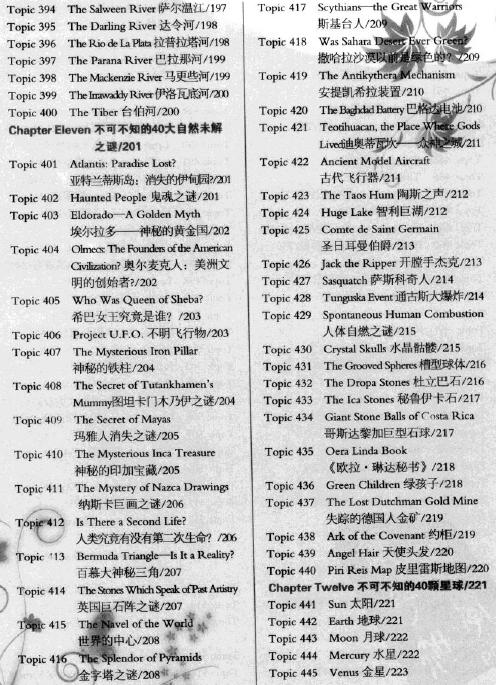 Topic 394 The Salween River 萨尔温江/197
Topic 395 The Darling River 达令河/198
Topic 396 The Rio de La Plata 拉普拉塔河/198
Topic 397 The Parana River 巴拉那河/199
Topic 398 The Mackenzie River 马更些河/199
Topic 399 The Irrawaddy River 伊洛瓦底河/200
Topic 400 The Tiber 台伯河/200
Chapter Eleven 不可不知的40大自然未解
之谜/201
Topic 401 Atlantis: Paradise Lost?
亚特兰蒂斯岛：消失的伊甸园?/201
Topic 402 Haunted People 鬼魂之谜/201
Topic 403 Eldorado—A Golden Myth
埃尔拉多——神秘的黄金国/202
Topic 404 Olmecs: The Founders of the American
Civilization? 奥尔麦克人：美洲文
明的创始者?/202
Topic 405 Who Was Queen of Sheba?
希巴女王究竟是谁？/203
Topic 406 Project U.F.O. 不明飞行物/203
Topic 407 The Mysterious Iron Pillar
神秘的铁柱/204
Topic 408 The Secret of Tutankhamen's
Mummy图坦卡门木乃伊之谜/204
Topic 409 The Secret of Mayas
玛雅人消失之谜/205
Topic 410 The Mysterious Inca Treasure
神秘的印加宝藏/205
Topic 411 The Mystery of Nazca Drawings
纳斯卡巨画之谜/206
Topic 412 Is There a Second Life?
人类究竟有没有第二次生命？/206
Topic 413 Bermuda Triangle—Is It a Reality?
百慕大神秘三角/207
Topic 414 The Stones Which Speak of Past Artistry
英国巨石阵之谜/207
Topic 415 The Navel of the World
世界的中心/208
Topic 416 The Splendor of Pyramids
金字塔之谜/208
Topic 417 Scythians—the Great Warriors
斯基台人/209
Topic 418 Was Sahara Desert Ever Green?
撒哈拉沙漠以前是绿色的？/209
Topic 419 The Antikythera Mechanism
安提凯希拉装置/210
Topic 420 The Baghdad Battery 巴格达电池/210
Topic 421 Teotihuacan, the Place Where Gods
Lived迪奥蒂瓦坎——众神之城/211
Topic 422 Ancient Model Aircraft
古代飞行器/211
Topic 423 The Taos Hum 陶斯之声/212
Topic 424 Huge Lake 智利巨湖/212
Topic 425 Comte de Saint Germain
圣日耳曼伯爵/213
Topic 426 Jack the Ripper 开膛手杰克/213
Topic 427 Sasquatch 萨斯科奇人/214
Topic 428 Tunguska Event 通古斯大爆炸/214
Topic 429 Spontaneous Human Combustion
人体自燃之谜/215
Topic 430 Crystal Skulls 水晶骷髅/215
Topic 431 The Grooved Spheres 槽型球体/216
Topic 432 The Dropa Stones 杜立巴石/216
Topic 433 The Ica Stones 秘鲁伊卡石/217
Topic 434 Giant Stone Balls of Costa Rica
哥斯达黎加巨型石球/217
Topic 435 Oera Linda Book
《欧拉·琳达秘书》/218
Topic 436 Green Children 绿孩子/218
Topic 437 The Lost Dutchman Gold Mine
失踪的德国人金矿/219
Topic 438 Ark of the Covenant 约柜/219
Topic 439 Angel Hair 天使头发/220
Topic 440 Piri Reis Map 皮里雷斯地图/220
Chapter Twelve 不可不知的40颗星球/221
Topic 441 Sun 太阳/221
Topic 442 Earth 地球/221
Topic 443 Moon 月球/222
Topic 444 Mercury 水星/222
Topic 445 Venus 金星/223